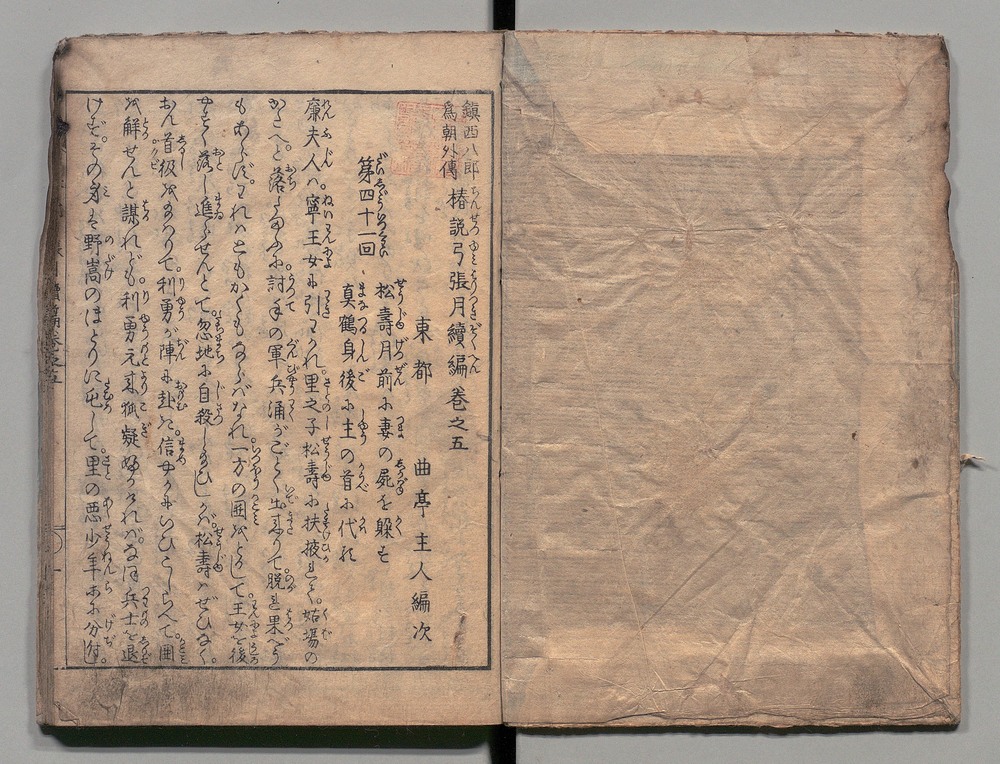 鎮西八郎
為朝外傳
椿説弓張月續編巻之五
東都 曲亭主人編次
第四十一回
松壽月前に妻の屍を躲す
真鶴身後に主の首に代る
廉夫人ハ寧王女に引れ。里之子松壽に扶掖れて。姑場の
かたへと落給ふに討手の軍兵涌がごとく出来りて脱れ果べう
もあらず。われハともかくもならバなれ一方の囲をとかして王女を後
やすく落し進らせんとて忽地に自殺し給ひしかバ。松壽ハぜひなく。
おん首級を給ハりて利勇が陣に赴き。信やかにいひこしらへて。囲
を解せんと謀れども。利勇元来狐疑ふかけれバ。なほ兵士を退
けず。その身は野嵩のほとりに屯して。里の悪少年等に分付し。